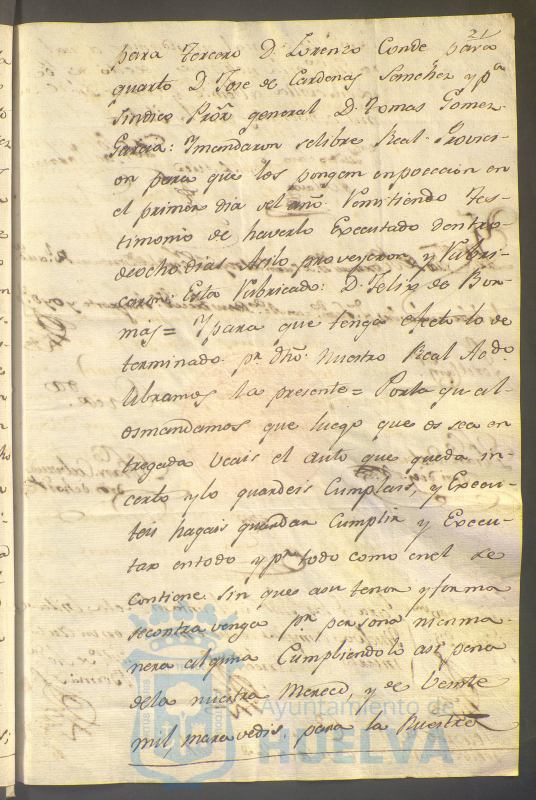 21
para tercero D. Lorenzo Conde para
quarto D. Jose de Cardenas Sanchez y pa
sindico Pror general D. Tomas Gomez
Garcia: Imandaron selibre Real Provici-
on para que los pongan enpocecion en
el primer dia del año. Remitiendo Tes-
timonio de haverlo Executado dentro
deocho dias. Asilo proveyeron y Rubri-
caron: Esta Rubricado: D. Felix de Bor-
mas = Ypara que tenga efecto lo de
terminado pr dho. Nuestro Real Acdo
libramos la presente = Porla qual
osmandamos que luego que os sea en
tregada veais el Auto que queda in-
certo y lo guardeis Cumplais, y Execu-
teis hagais guardar Cumplir y Execu-
tar entodo y pr todo como enel se
contiene. sin que asu tenor y forma
secontravenga pr persona nienma-
nera alguna Cumpliendolo asi pena
dela nuestra Merced, y de Veinte
mil maravedis, para la Nuestra
Ayuntamiento de
HUELVA